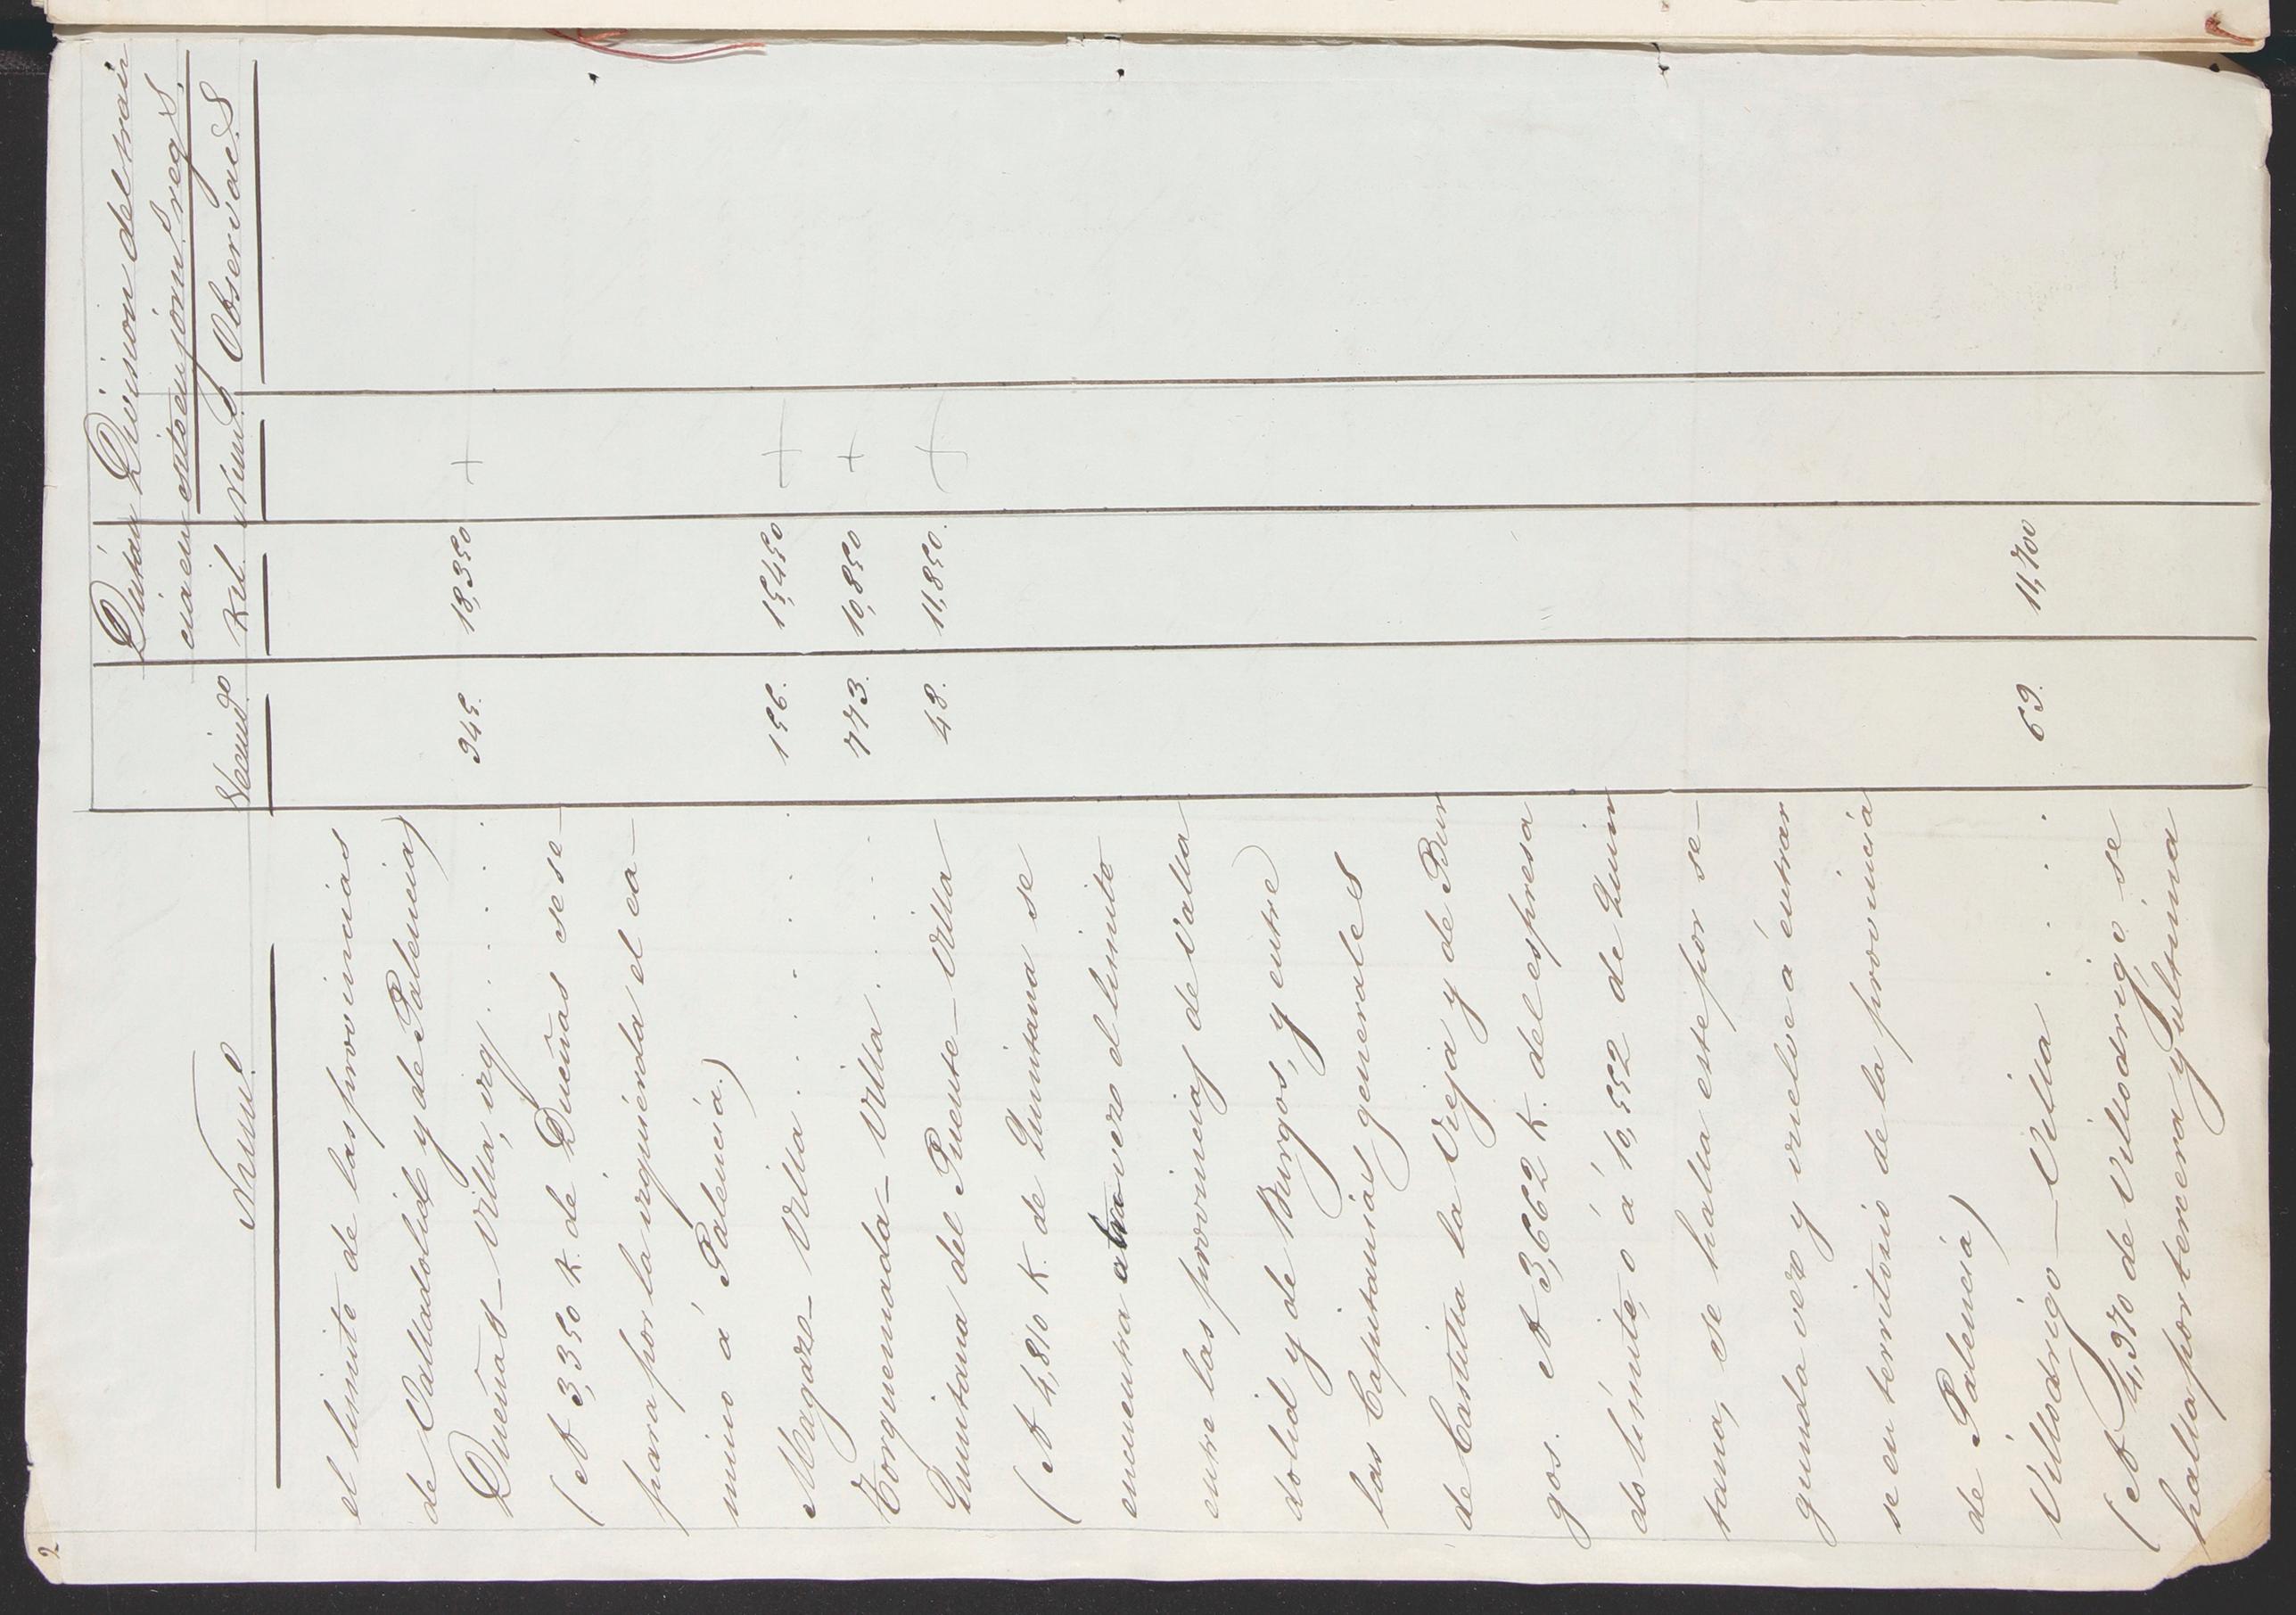 2
Distán Division del trán
cia en sito en jorn.s reg.s
Num.s Vecind.o Kil. Num.s Observac.s
el limite de las provincias
de Valladolid y de Palencia)
Dueñas _ Villa, izq . . . . . 945. 18,350
(A 3,350 K. de Dueñas se se-
para por la izquierda el ca-
mino á Palencia.)
Magaz _ Villa . . . . . . 156. 15,450
Torquemada _ Villa . . . . 773. 10,850
Quintana del Puente _ Villa 48. 11,850.
(A 4,810 K. de Quintana se
encuentra a tra vez el limite
entre las provincias de Valla
dolid y de Burgos, y entre)
las Capitanías generales
de Castilla la Vieja y de Bur
gos. A 3,662 K. del espresa
do límite, o á 10,552 de Quin
tana, se halla este por se-
gunda vez y vuelve á entrar
se en territorio de la provincia
de Palencia)
Villodrigo _ Villa . . . . 69. 11,700
(A 4,370 de Villodrigo se
halla por tercera y ultima